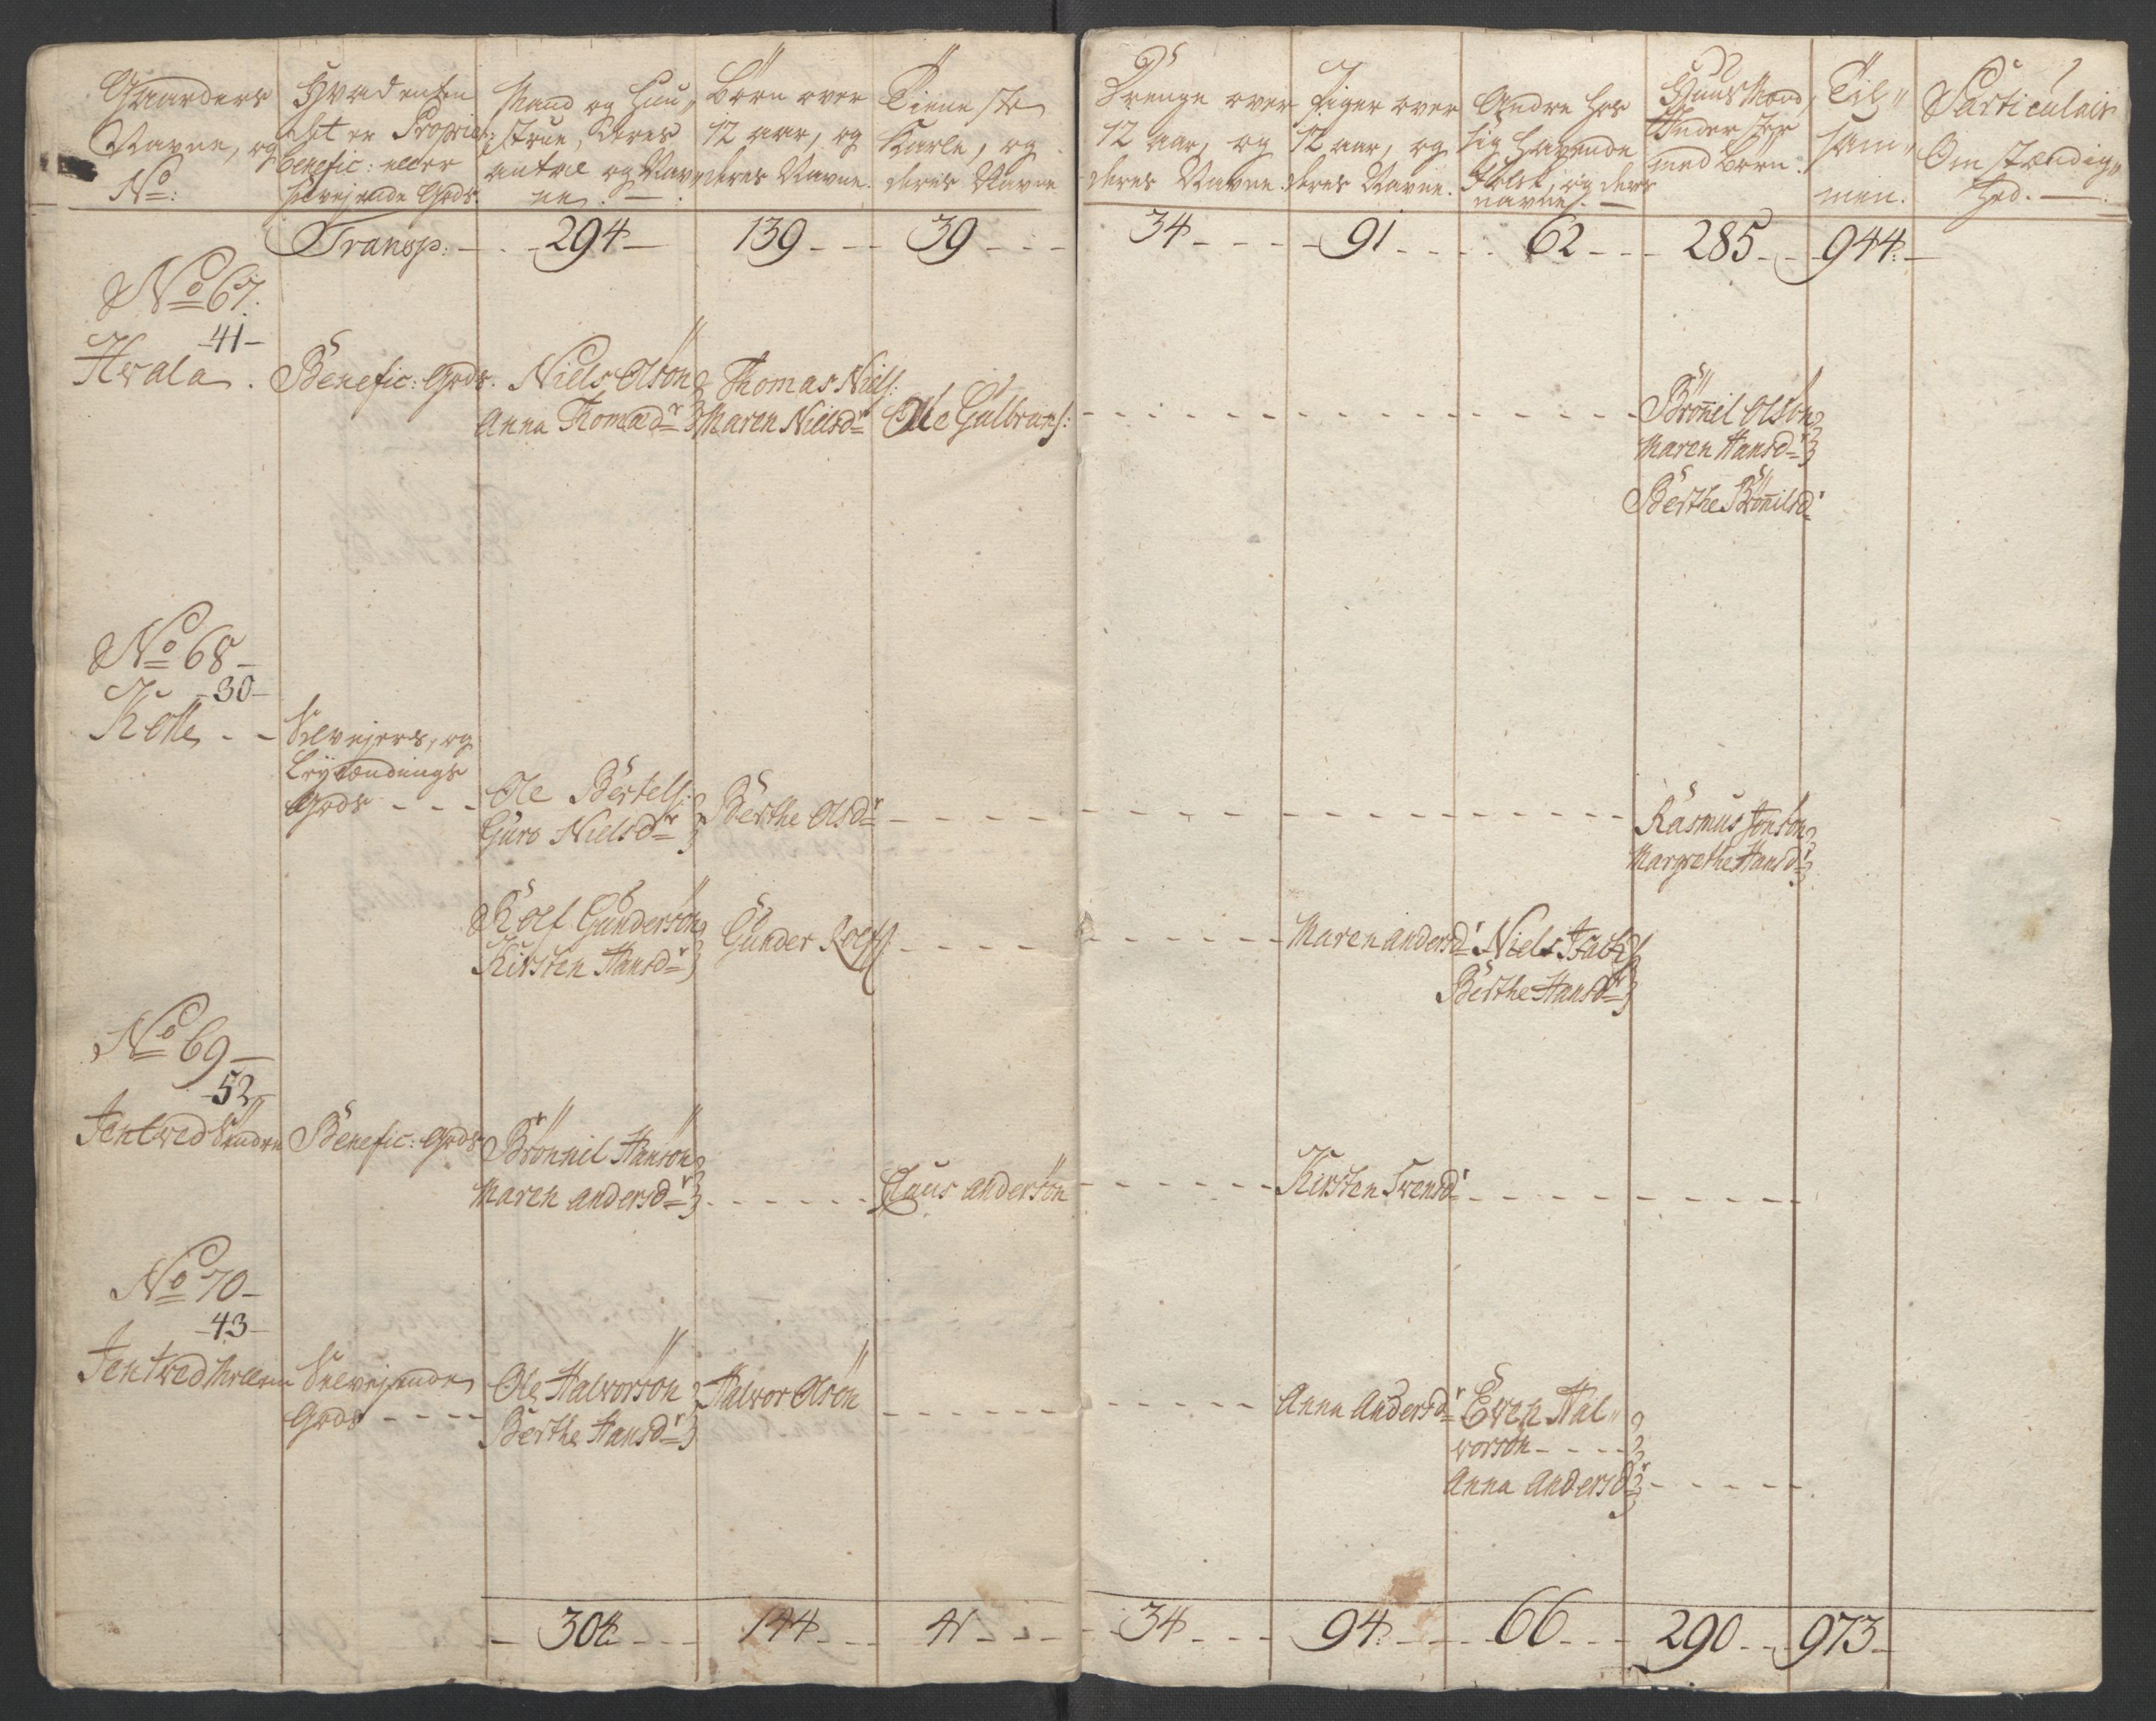 Gaarders
Navne, og
No:
Hvad enten
det er Proprie:
benefic: eller
selvejende Gods.
Mand og Huu„
strue, deres
antal og Nav„
ne.
Børn over
12 aar, og
deres Navne.
Tieneste
Karle, og
deres Navne
Drenge over
12 aar, og
deres Navne.
Piger over
12 aar, og
deres Navne.
Andre hos
sig havende
Folk, og deres
navne.
Huus Mænd,
Inderster
med Børn.
Til„
sam„
men.
Particulair
Omstændig„
hed.
Transp: 294 139 39 34 91 62 285 944
No 67.
41
Hvala. Benefic: Gods. Niels Olsøn Thomas Niels:
Anna Thomædr Maren Nielsdr Ole Gulbrans:
Brønnil Olsøn
Maren Hansdr
Berthe Brønnilsdr
No 68
30
Kolle Selvejers, og
Leylændings
Gods Ole Bertels:
Guro Nielsdr Berthe Olsdr
Rasmus Jonsøn
Margrethe Hansdr
Rolf Gundersøn
Kirsten Hansdr Gunder Rolfs:
Maren Andersdr Niels
Berthe Hansdr
No 69
52
Jentved Søndre Benefic: Gods Brønnil Hansøn
Maren Andersdr Claus Andersøn Kirsten Svensdr
No 70
43
Jentved Mellem Selvejende
Gods Ole Halvorsøn Halvor Olsøn
Berthe Hansdr
Anna Andersdr Even Hal„
vorsøn
Anna Andersdr
304 144 41 34 94 66 290 973